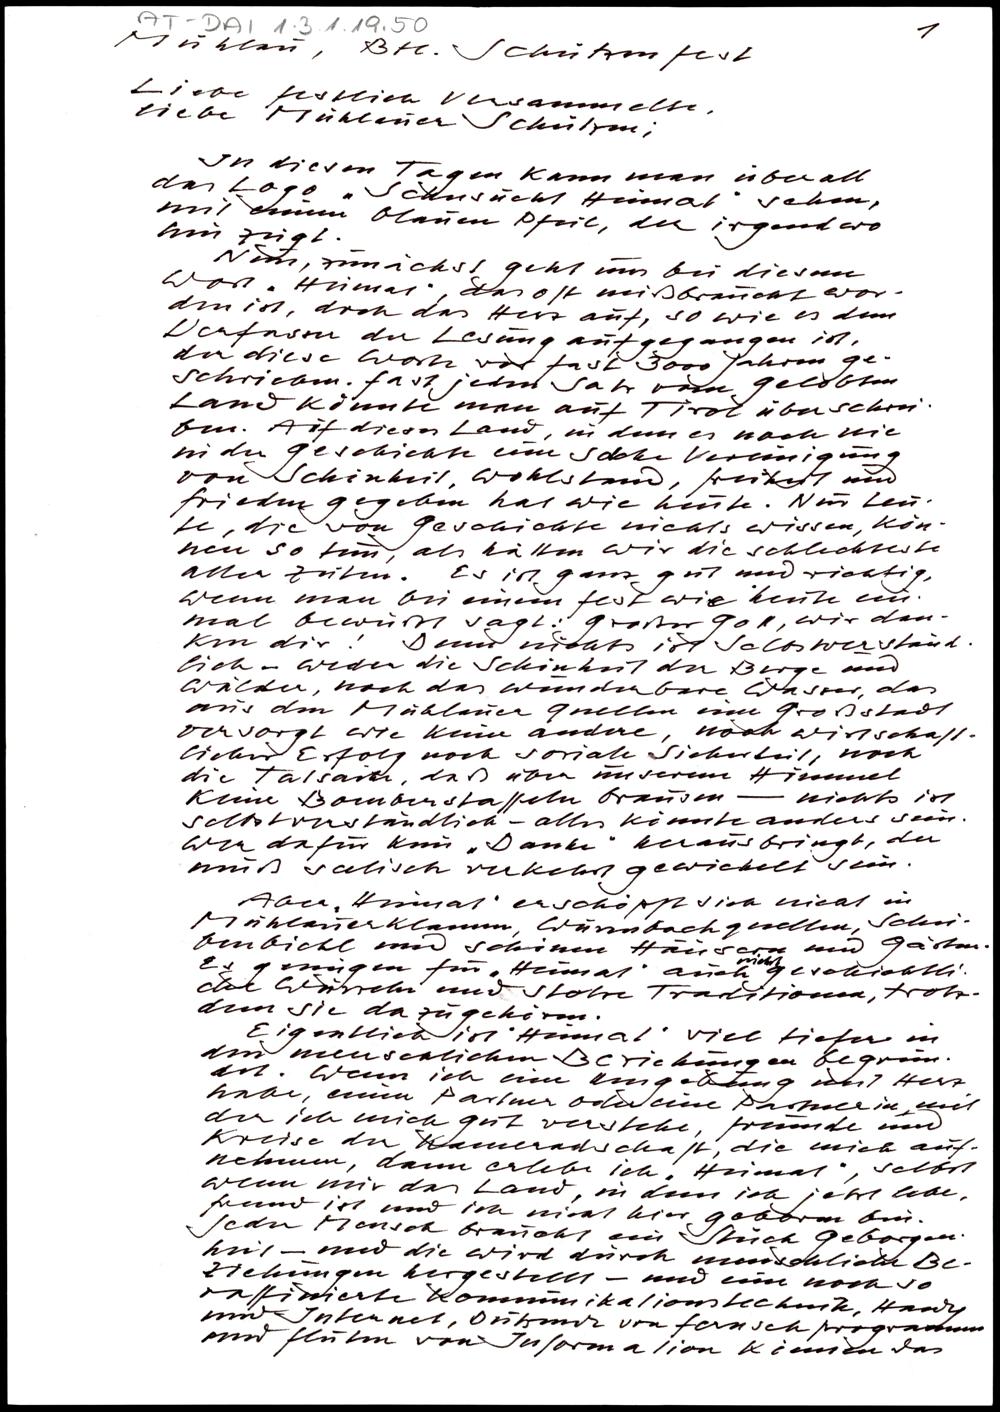 AT-DAI 1.3.1.19.50
1
Mühlau, Btl. Schützenfest
Liebe festlich Versammelte,
liebe Mühlauer Schützen;
In diesen Tagen kann man überall
das Logo "Sehnsucht Heimat" sehen,
mit einem blauen Pfeil, der irgendwo
hin zeigt.
Nun, zunächst geht uns bei diesem
Wort "Heimat", das oft mißbraucht wor-
den ist, doch das Herz auf, so wie es dem
Verfasser der Lesung aufgegangen ist,
der diese Worte vor fast 3000 Jahren ge-
schrieben. Fast jeden Satz vom gelobten
Land könnte man auf Tirol überschrei-
ben. Auf dieses Land, in dem es noch nie
in der Geschichte eine solche Vereinigung
von Schönheit, Wohlstand, Freiheit und
Frieden gegeben hat wie heute. Nur Leu-
te, die von Geschichte nichts wissen, kön-
nen so tun, als hätten wir die schlechteste
aller Zeiten. Es ist ganz gut und richtig,
wenn man bei einem Fest wie heute ein-
mal bewußt sagt: Großer Gott, wir dan-
ken dir! Denn nichts ist selbstverständ-
lich - weder die Schönheit der Berge und
Wälder, noch das wunderbare Wasser, das
aus den Mühlauer Quellen eine Großstadt
versorgt wie keine andere, noch wirtschaft-
licher Erfolg noch soziale Sicherheit, noch
die Tatsache, daß über unserem Himmel
keine Bomberstaffeln brausen — nichts ist
selbstverständlich - alles könnte anders sein.
Wer dafür kein "Danke" herausbringt, der
muß seelisch verkehrt gewickelt sein.
Aber "Heimat" erschöpft sich nicht in
Mühlauerklamm, Wurmbachquellen, Schei-
benbichl und schönen Häusern und Gärten.
Es genügen für "Heimat" auch nicht geschichtli-
che Wurzeln und stolze Traditionen, trotz-
dem sie dazugehören.
Eigentlich ist "Heimat" viel tiefer in
den menschlichen Beziehungen begrün-
det. Wenn ich eine Umgebung mit Herz
habe, einen Partner oder eine Partnerin, mit
der ich mich gut verstehe, Freunde und
Kreise der Kameradschaft, die mich auf-
nehmen, dann erlebe ich "Heimat", selbst
wenn mir das Land, in dem ich jetzt lebe,
fremd ist und ich nicht hier geboren bin.
Jeder Mensch braucht ein Stück Geborgen-
heit - und die wird durch menschliche Be-
ziehungen hergestellt - und eine noch so
raffinierte Kommunikationstechnik, Handy
und Internet, Dutzende von Fernsehprogrammen
und Fluten von Information können das